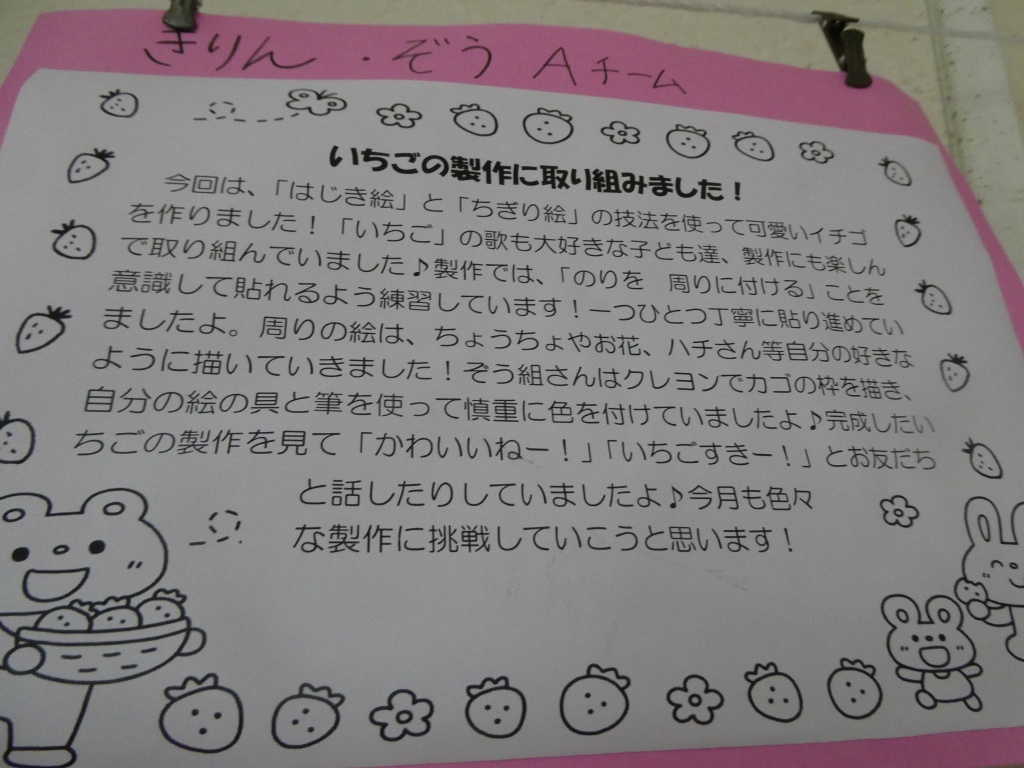 きりん・ぞう Aチーム
いちごの製作に取り組みました！
今回は、「はじき絵」と「ちぎり絵」の技法を使って可愛いイチゴ
を作りました！「いちご」の歌も大好きな子ども達、製作にも楽しん
で取り組んでいました♪製作では、「のりを　周りに付ける」ことを
意識して貼れるよう練習しています！一つひとつ丁寧に貼り進めてい
ましたよ。周りの絵は、ちょうちょやお花、ハチさん等自分の好きな
ように描いていきました！ぞう組さんはクレヨンでカゴの枠を描き、
自分の絵の具と筆を使って慎重に色を付けていましたよ♪完成したい
ちごの製作を見て「かわいいねー！」「いちごすきー！」とお友だち
と話したりしていましたよ♪今月も色々
な製作に挑戦していこうと思います！